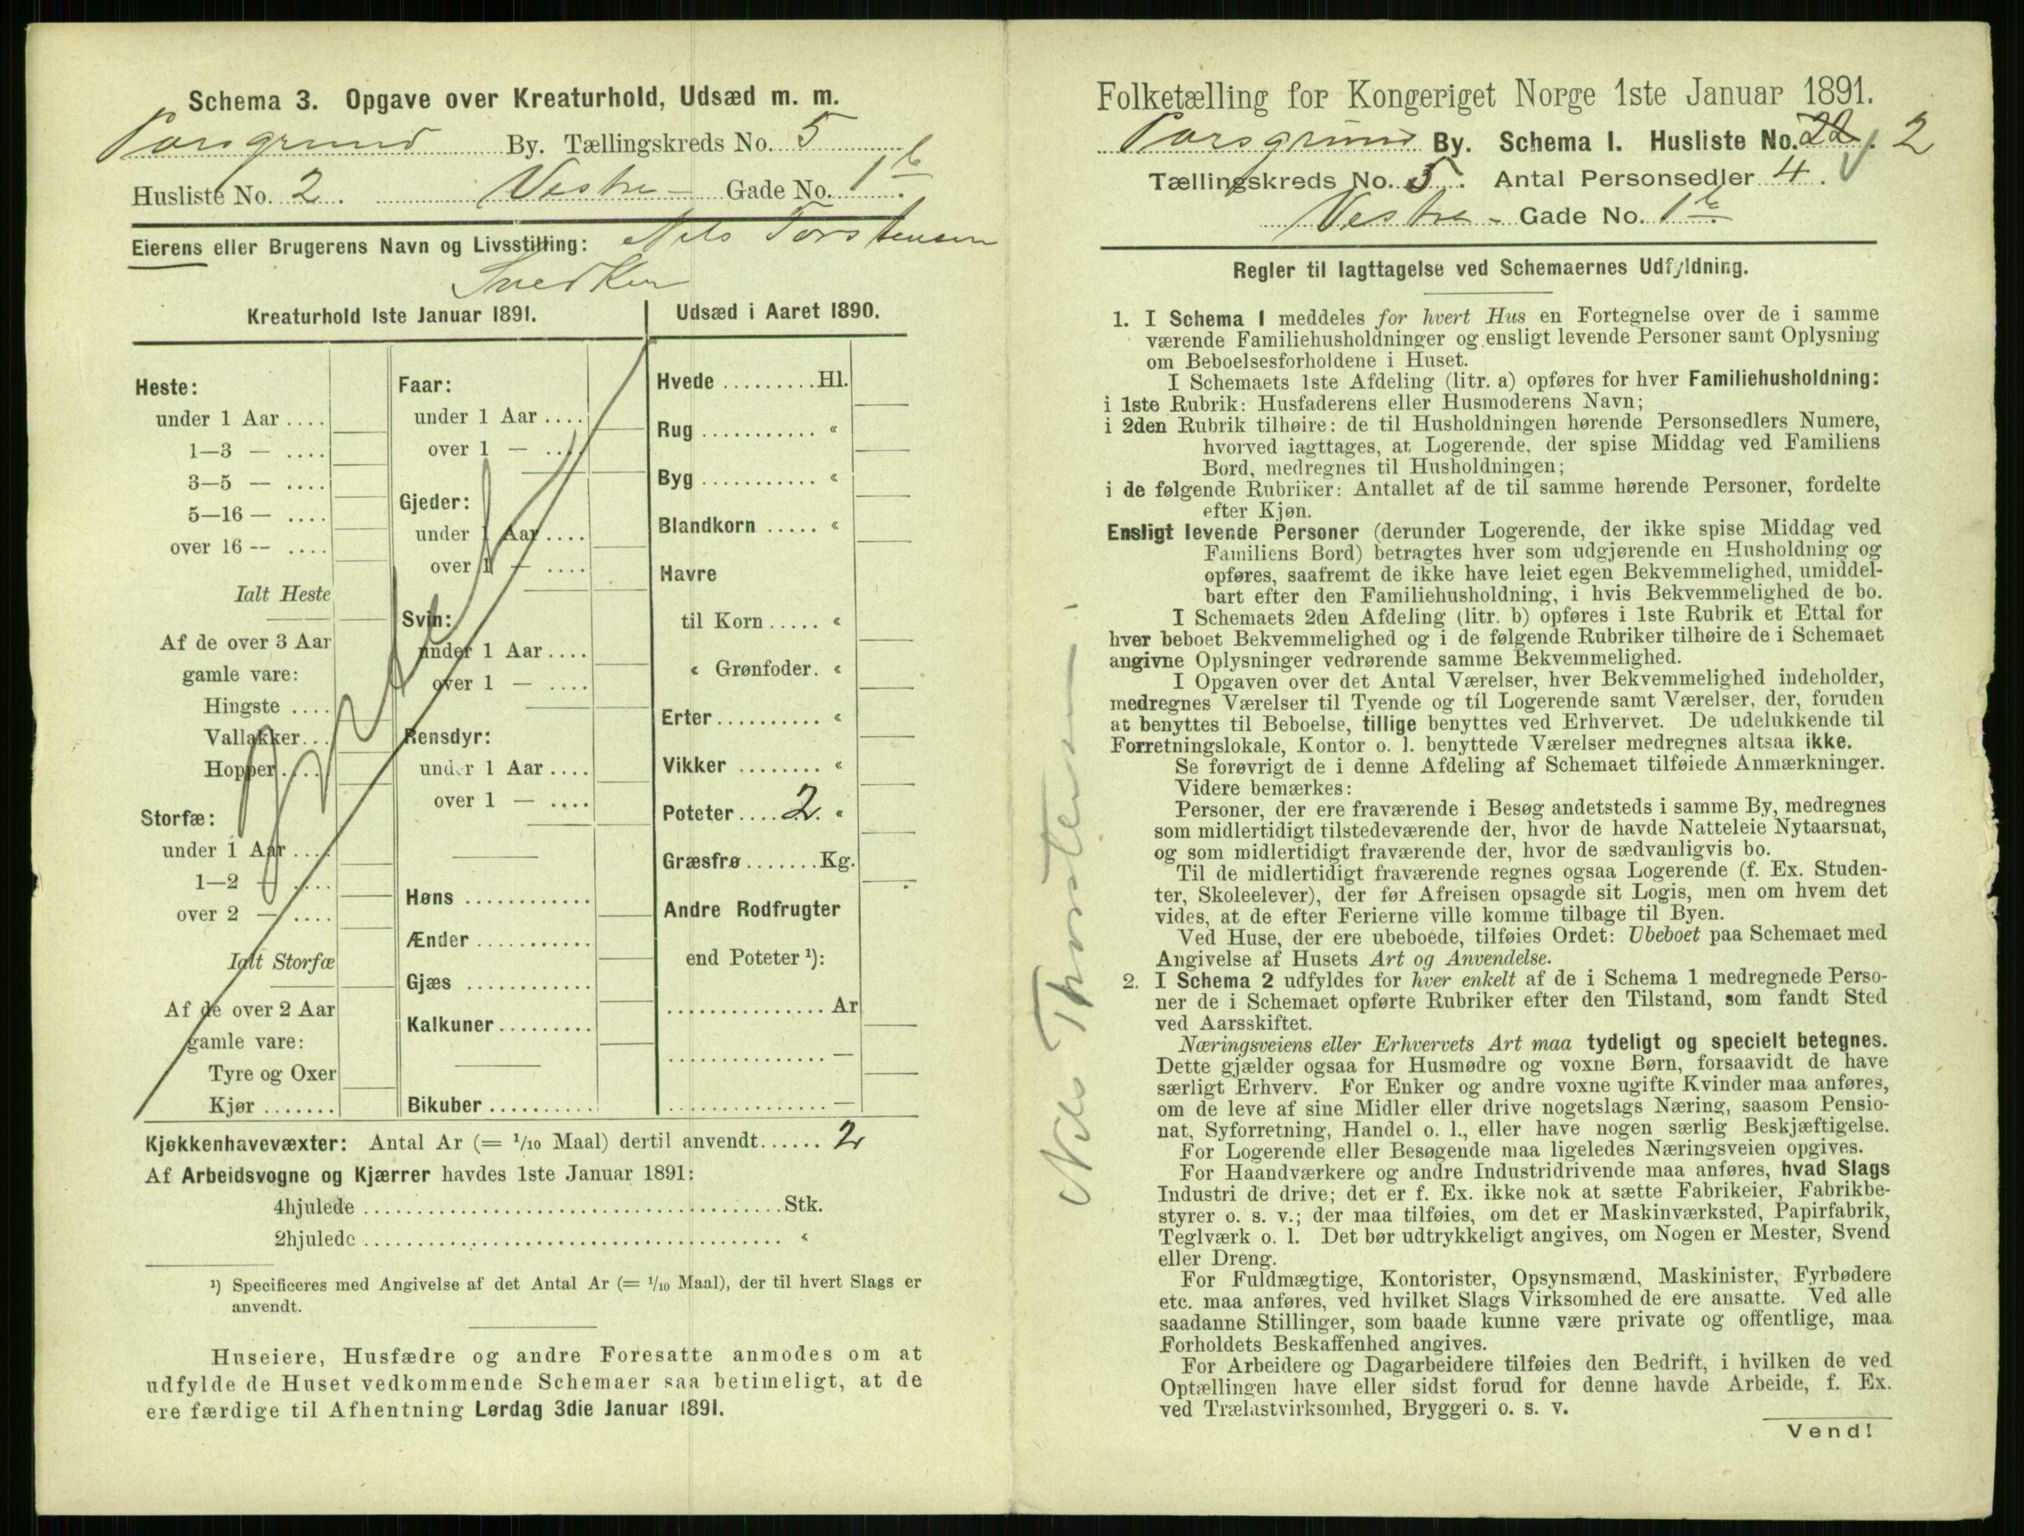 Schema 3. Opgave over Kreaturhold, Udsæd m. m.
Porsgrund By. Tællingskreds No. 5
Husliste No. 2. Vestre - Gade No. 1 b.
Eierens eller Brugerens Navn og Livsstilling: Nils Torstensen
Snedker
Kreaturhold 1ste Januar 1891.
Heste:
under 1 Aar ....
1—3 — ....
3—5 — ....
5—16 — ....
over 16 -- ....
Ialt Heste
Af de over 3 Aar
gamle vare:
Hingste ....
Vallakker...
Hopper....
Storfæ:
under 1 Aar ....
1—2 — ....
over 2 — ....
Ialt Storfæ
Af de over 2 Aar
gamle vare:
Tyre og Oxer
Kjør .......
Faar:
under 1 Aar ....
over 1 — ....
Gjeder:
under 1 Aar ....
over 1 — ....
Svin:
under 1 Aar ....
over 1 — ....
Rensdyr:
under 1 Aar ....
over 1 — ....
Høns ............
Ænder ...........
Gjæs ............
Kalkuner.........
Bikuber ..........
Udsæd i Aaret 1890.
Hvede .........Hl.
Rug ........... «
Byg ........... «
Blandkorn ..... «
Havre
til Korn ..... «
« Grønfoder. «
Erter.......... «
Vikker ........ «
Poteter .... 2. «
Græsfrø .......Kg.
Andre Rodfrugter
end Poteter ¹):
............... Ar
............... —
............... —
Kjøkkenhavevæxter: Antal Ar (= 1/10 Maal) dertil anvendt...... 2
Af Arbeidsvogne og Kjærrer havdes 1ste Januar 1891:
4hjulede ........................................Stk.
2hjulede ........................................ «
¹) Specificeres med Angivelse af det Antal Ar (= 1/10 Maal), der til hvert Slags er
anvendt.
Huseiere, Husfædre og andre Foresatte anmodes om at
udfylde de Huset vedkommende Schemaer saa betimeligt, at de
ere færdige til Afhentning Lørdag 3die Januar 1891.
Folketælling for Kongeriget Norge 1ste Januar 1891.
Porsgrund By. Schema I. Husliste No. 22. 2
Tællingskreds No. 5. Antal Personsedler 4.
Vestre - Gade No. 1 b.
Regler til Iagttagelse ved Schemaernes Udfyldning.
1. I Schema 1 meddeles for hvert Hus en Fortegnelse over de i samme
værende Familiehusholdninger og ensligt levende Personer samt Oplysning
om Beboelsesforholdene i Huset.
I Schemaets 1ste Afdeling (litr. a) opføres for hver Familiehusholdning:
i 1ste Rubrik: Husfaderens eller Husmoderens Navn;
i 2den Rubrik tilhøire: de til Husholdningen hørende Personsedlers Numere,
hvorved iagttages, at Logerende, der spise Middag ved Familiens
Bord, medregnes til Husholdningen;
i de følgende Rubriker: Antallet af de til samme hørende Personer, fordelte
efter Kjøn.
Ensligt levende Personer (derunder Logerende, der ikke spise Middag ved
Familiens Bord) betragtes hver som udgjørende en Husholdning og
opføres, saafremt de ikke have leiet egen Bekvemmelighed, umiddel-
bart efter den Familiehusholdning, i hvis Bekvemmelighed de bo.
I Schemaets 2den Afdeling (litr. b) opføres i 1ste Rubrik et Ettal for
hver beboet Bekvemmelighed og i de følgende Rubriker tilhøire de i Schemaet
angivne Oplysninger vedrørende samme Bekvemmelighed.
I Opgaven over det Antal Værelser, hver Bekvemmelighed indeholder,
medregnes Værelser til Tyende og til Logerende samt Værelser, der, foruden
at benyttes til Beboelse, tillige benyttes ved Erhvervet. De udelukkende til
Forretningslokale, Kontor o. l. benyttede Værelser medregnes altsaa ikke.
Se forøvrigt de i denne Afdeling af Schemaet tilføiede Anmærkninger.
Videre bemærkes:
Personer, der ere fraværende i Besøg andetsteds i samme By, medregnes
som midlertidigt tilstedeværende der, hvor de havde Natteleie Nytaarsnat,
og som midlertidigt fraværende der, hvor de sædvanligvis bo.
Til de midlertidigt fraværende regnes ogsaa Logerende (f. Ex. Studen-
ter, Skoleelever), der før Afreisen opsagde sit Logis, men om hvem det
vides, at de efter Ferierne ville komme tilbage til Byen.
Ved Huse, der ere ubeboede, tilføies Ordet: Ubeboet paa Schemaet med
Angivelse af Husets Art og Anvendelse.
2. I Schema 2 udfyldes for hver enkelt af de i Schema 1 medregnede Perso-
ner de i Schemaet opførte Rubriker efter den Tilstand, som fandt Sted
ved Aarsskiftet.
Næringsveiens eller Erhvervets Art maa tydeligt og specielt betegnes.
Dette gjælder ogsaa for Husmødre og voxne Børn, forsaavidt de have
særligt Erhverv. For Enker og andre voxne ugifte Kvinder maa anføres,
om de leve af sine Midler eller drive nogetslags Næring, saasom Pensio-
nat, Syforretning, Handel o. l., eller have nogen særlig Beskjæftigelse.
For Logerende eller Besøgende maa ligeledes Næringsveien opgives.
For Haandværkere og andre Industridrivende maa anføres, hvad Slags
Industri de drive; det er f. Ex. ikke nok at sætte Fabrikeier, Fabrikbe-
styrer o. s. v.; der maa tilføies, om det er Maskinværksted, Papirfabrik,
Teglværk o. l. Det bør udtrykkeligt angives, om Nogen er Mester, Svend
eller Dreng.
For Fuldmægtige, Kontorister, Opsynsmænd, Maskinister, Fyrbødere
etc. maa anføres, ved hvilket Slags Virksomhed de ere ansatte. Ved alle
saadanne Stillinger, som baade kunne være private og offentlige, maa
Forholdets Beskaffenhed angives.
For Arbeidere og Dagarbeidere tilføies den Bedrift, i hvilken de ved
Optællingen have eller sidst forud for denne havde Arbeide, f. Ex.
ved Trælastvirksomhed, Bryggeri o. s. v.
Vend!
Nils Thorstensen